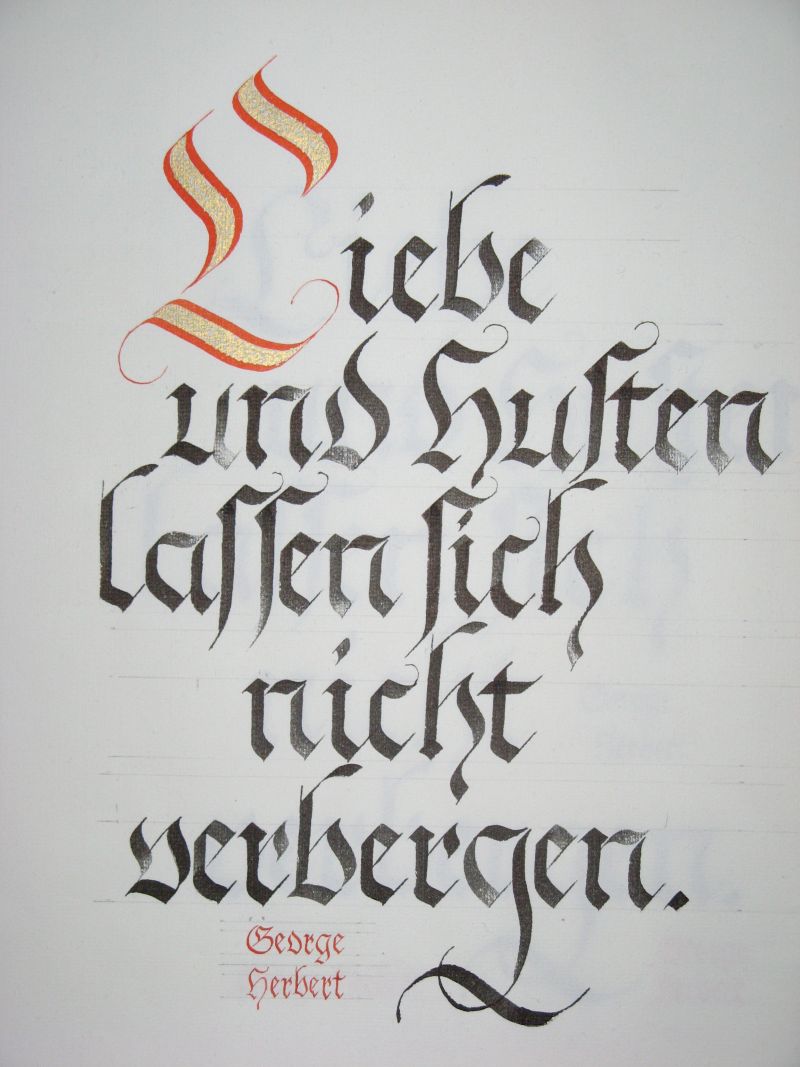 Liebe
und Husten
lassen sich
nicht
verbergen.
George
Herbert